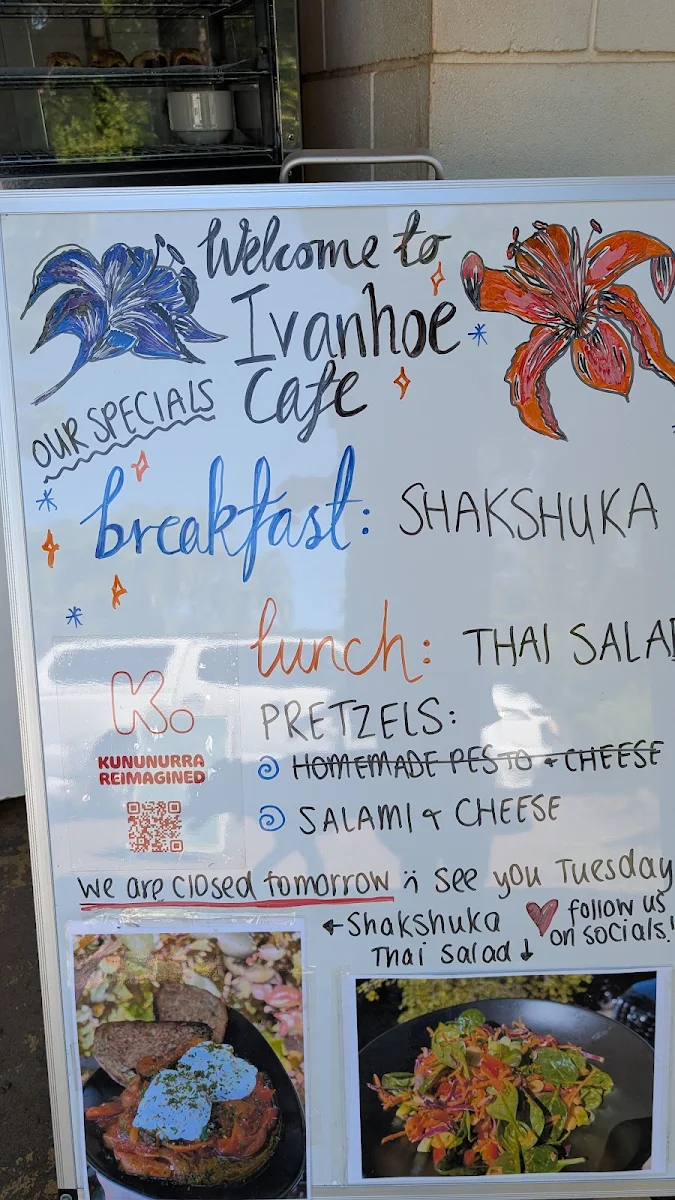 Welcome to
Ivanhoe
Cafe
OUR SPECIALS
breakfast: SHAKSHUKA
lunch: THAI SALAD
PRETZELS:
HOMEMADE PESTO & CHEESE
SALAMI & CHEESE
K.
KUNUNURRA
REIMAGINED
We are closed tomorrow :( See you Tuesday
←Shakshuka
Thai Salad↓
follow us
on socials!